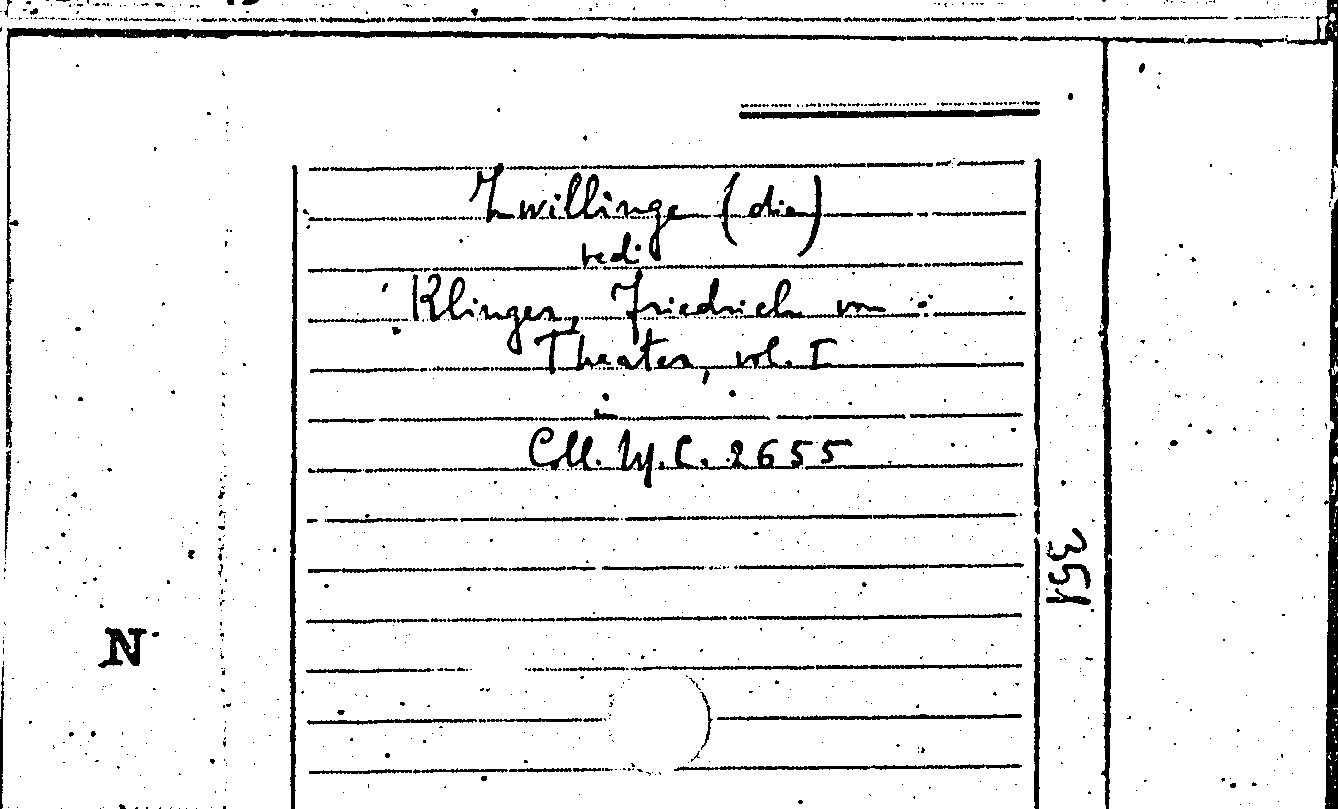 Zwillinge (die)
vedi
Klinger, Friedrich von :
Theater, vol. I
in
Coll. M.C. 2655
351
N